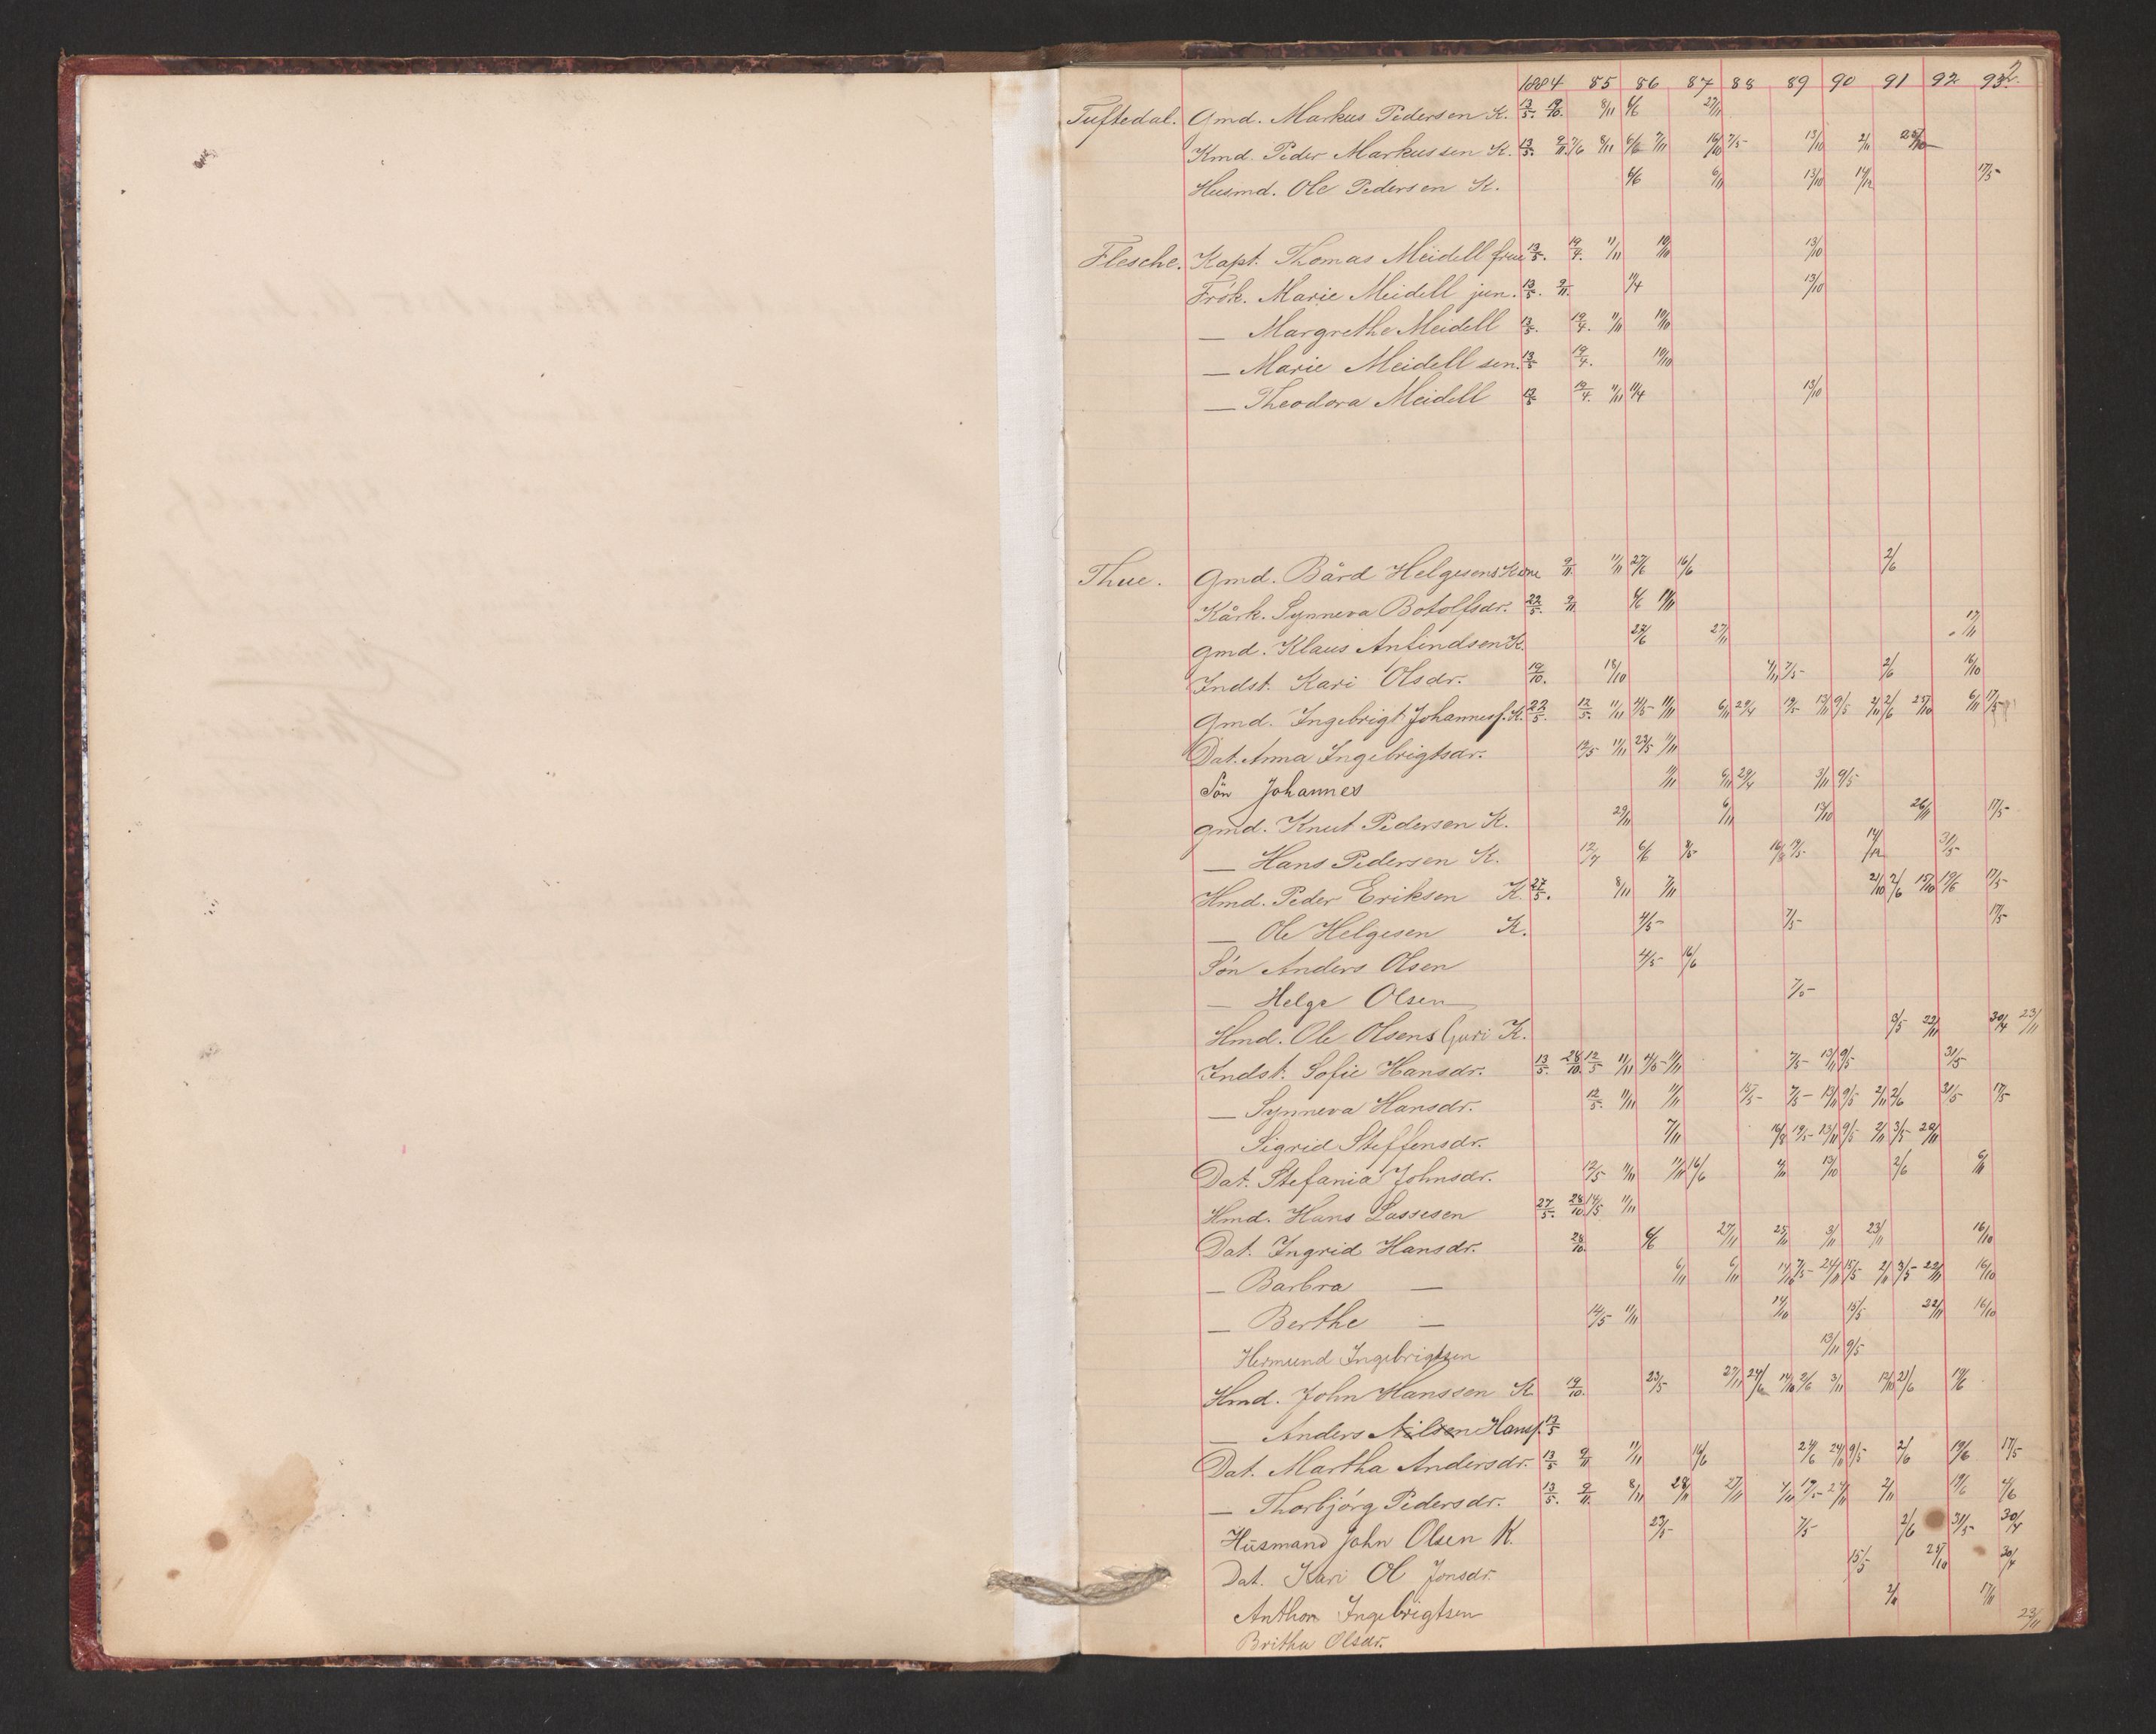 2.
1884 85 86 87 88 89 90 91 92 93
Tuftedal. Gmd. Markus Pedersen K. 13/5. 19/10. 8/11 6/6 27/11
Kmd. Peder Markussen K. 13/5. 9/11. 7/6 8/11 6/6 7/11 16/10 7/5 13/10 2/11 25/10
Husmd. Ole Pedersen K. 6/6 6/11 13/10 14/12 17/5
Flesche. Kapt. Thomas Meidell frue 13/5. 19/4. 11/11 10/10 13/10
Frök. Marie Meidell jun. 13/5. 9/11. 11/4 13/10
— Margrethe Meidell 13/5. 19/4. 11/11 10/10
— Marie Meidell sen. 13/5 19/4. 10/10
— Theodora Meidell 13/5 19/4. 11/11 11/4 13/10
Thue. Gmd. Bård Helgesens Kone 9/11. 11/11 27/6 16/6 2/6
Kårk. Synneva Botolfsdr. 22/5. 9/11 6/6 11/11
Gmd. Klaus Anfindsen K. 27/6 27/11 17/11
Indst. Kari Olsdr. 19/10. 18/10 4/11 7/5 2/6 16/10
Gmd. Ingebrigt Johannesf. K. 22/5. 12/5. 11/11 4/5 11/11 6/11 29/4 19/5 13/11 9/5 2/11 2/6 25/10 6/11 17/5
Dat. Anna Ingebrigtsdr. 12/5 11/11 23/5 11/11
Sön Johannes 11/11 6/11 29/4 3/11 9/5
Gmd. Knut Pedersen K. 29/11 6/11 13/10 26/11 17/5
— Hans Pedersen K. 12/7 6/6 8/5 16/8 19/5 14/12 31/5
Hmd. Peder Eriksen K. 27/5. 8/11 7/11 2/10 2/6 15/10 19/6 17/5
— Ole Helgesen K. 4/5 7/5 17/5
Sön Anders Olsen 4/5 16/6
— Helge Olsen 7/5
Hmd. Ole Olsens Guri K. 3/5 22/11 30/4 23/11
Indst. Sofie Hansdr. 13/5. 28/10. 12/5 11/11 4/5 11/11 7/5 13/11 9/5 31/5
— Synneva Hansdr. 12/5. 11/11 11/11 15/5 7/5 13/11 9/5 2/11 2/6 31/5 17/5
Sigrid Steffensdr. 7/11 16/8 19/5 13/11 9/5 2/11 3/5 29/11
Dat. Stefania Johnsdr. 12/5 11/11 11/11 16/6 4/11 13/10 2/6 6/11
Hmd. Hans Lassesen 27/5. 28/10. 14/5 11/11
Dat. Ingrid Hansdr. 28/10. 6/6 27/11 25/11 3/11 23/11 16/10
— Barbra — 6/11 6/11 14/10 7/5 24/11 15/5 2/11 3/5 22/11 16/10
— Berthe — 14/5 11/11 14/10 15/5 22/11 16/10
Hermund Ingebrigtsen 13/11 9/5
Hmd. John Hanssen K 19/10. 23/5 27/11 24/6 14/10 2/6 3/11 12/10 21/6 19/6
— Anders Nilsen Hansf. 13/5
Dat. Martha Andersdr. 13/5 9/11 11/11 16/6 24/6 24/11 9/5 2/6 19/6 17/5
— Thorbjörg Pedersdr. 13/5. 9/11. 8/11 28/11 27/11 4/11 19/5 24/11 2/11 19/6 4/6
Husmand John Olsen K. 23/5 7/5 2/6 31/5 30/4
Dat. Kari Ol Jonsdr. 15/5 25/10 30/4
Anthon Ingebrigtsen 2/11 17/11
Britha Olsdr. 23/11